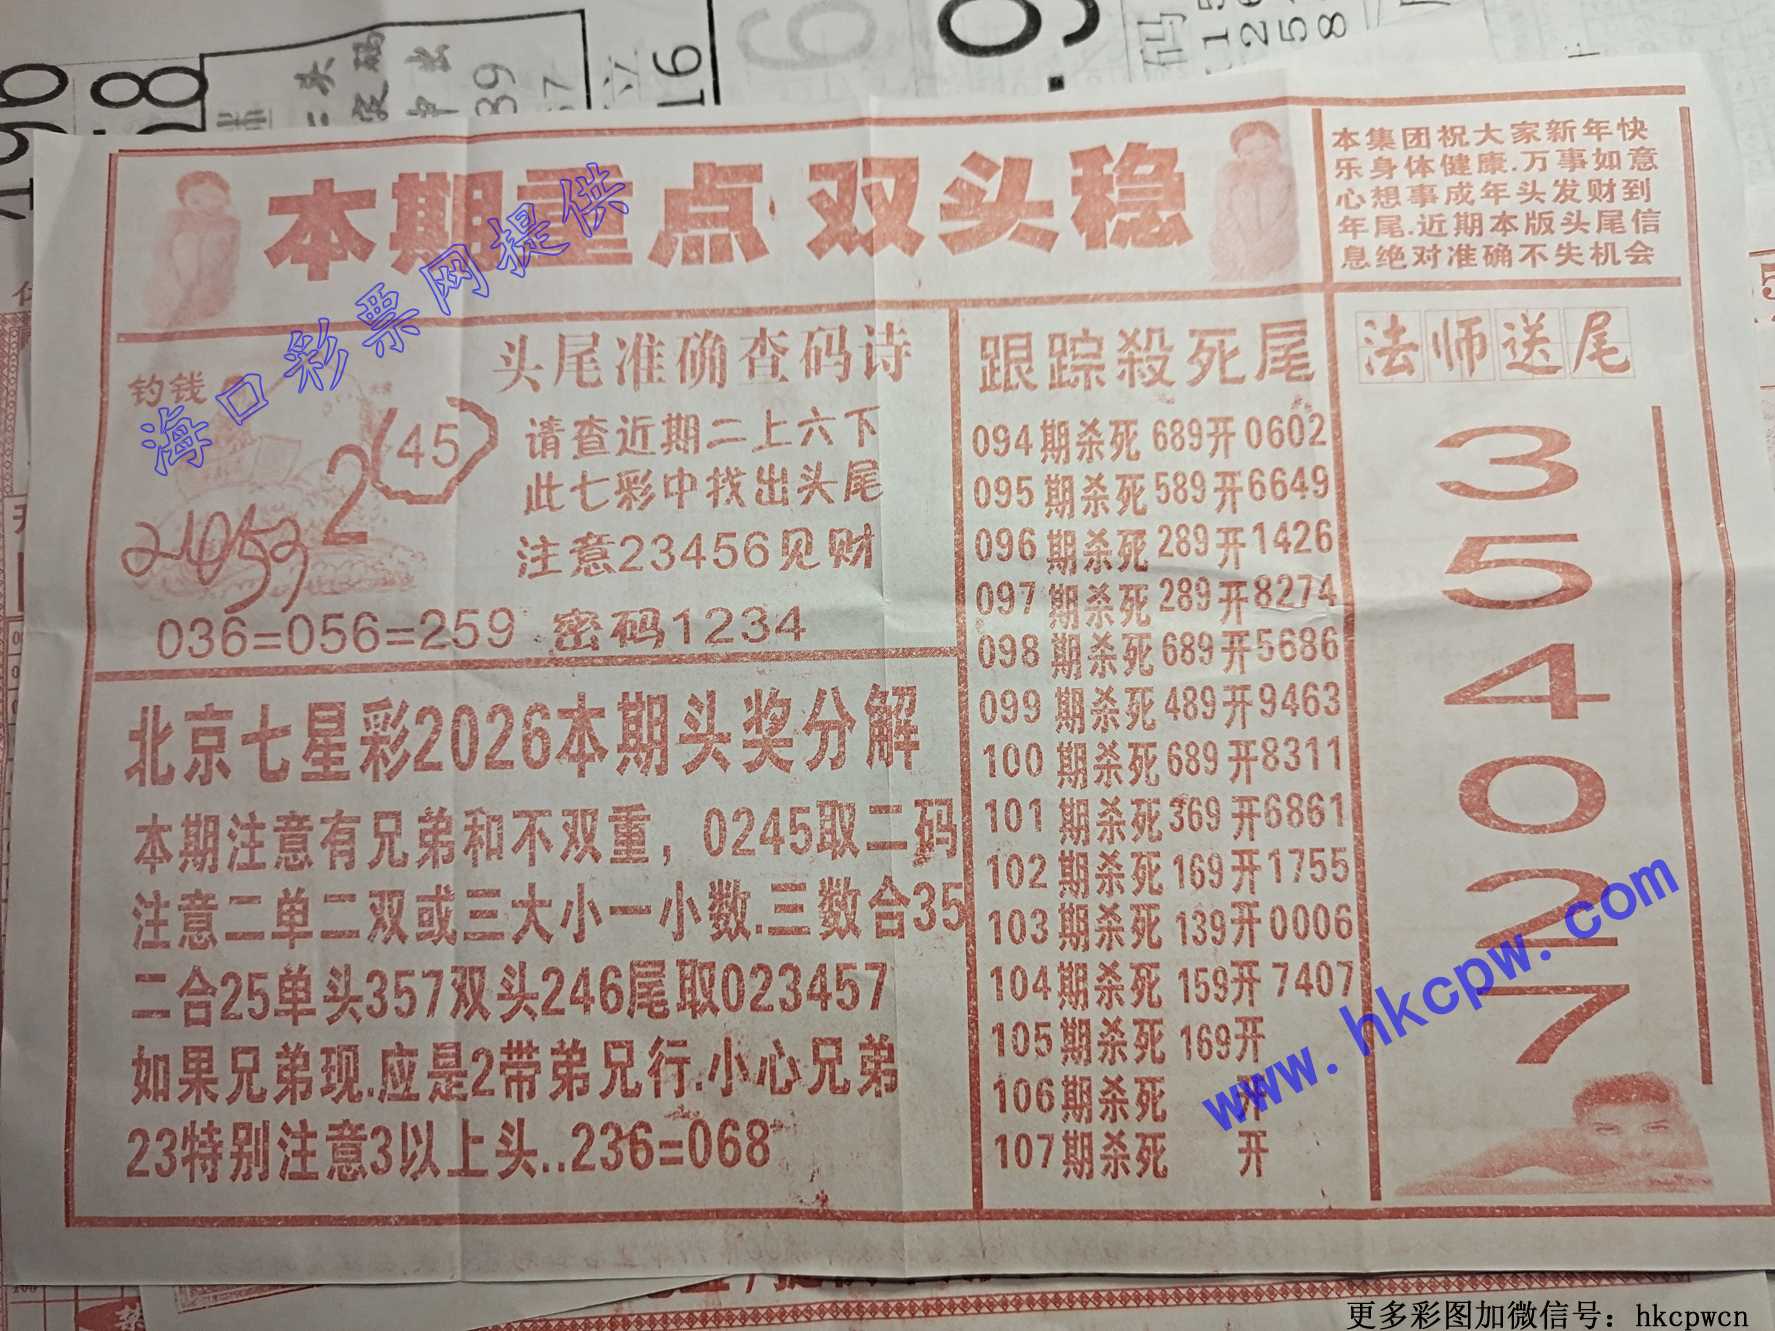 本期重点双头稳
本集团祝大家新年快
乐身体健康.万事如意
心想事成年头发财到
年尾.近期本版头尾信
息绝对准确不失机会
海口彩票网提供
钓钱
头尾准确查码诗
2(45)
请查近期二上六下
此七彩中找出头尾
注意23456见财
036=056=259 密码1234
北京七星彩2026本期头奖分解
本期注意有兄弟和不双重，0245取二码
注意二单二双或三大小一小数.三数合35
二合25单头357双头246尾取023457
如果兄弟现.应是2带弟兄行.小心兄弟
23特别注意3以上头..236=068
跟踪殺死尾
094期杀死689开0602
095期杀死589开6649
096期杀死289开1426
097期杀死289开8274
098期杀死689开5686
099期杀死489开9463
100期杀死689开8311
101期杀死369开6861
102期杀死169开1755
103期杀死139开0006
104期杀死159开7407
105期杀死169开
106期杀死 开
107期杀死 开
法师送尾
3
5
4
0
2
7
www.hkcpw.com
更多彩图加微信号：hkcpwcn